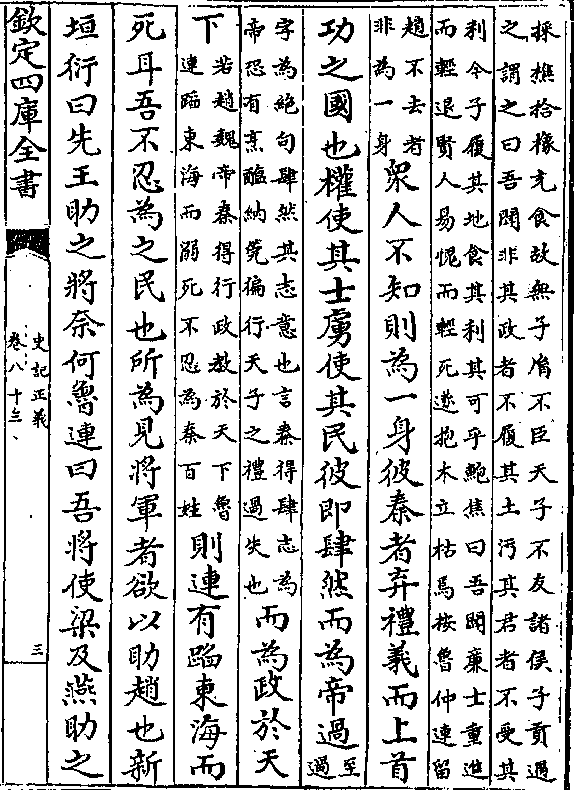 採樵拾橡充食故無子𦙍不臣天子不友諸侯子貢過
之謂之曰吾聞非其政者不履其土汚其君者不受其
利今子履其地食其利其可乎鮑焦曰吾聞廉士重進
而輕退賢人易愧而輕死遂抱木立枯焉按魯仲連留
趙不去者
非為一身
衆人不知則為一身彼秦者弃禮義而上首
功之國也權使其士虜使其民彼即肆然而為帝過
至
過
字為絶句肆然其志意也言秦得肆志為
帝恐有烹醢納筦徧行天子之禮過失也
而為政於天
下
若趙魏帝秦得行政教於天下魯
連蹈東海而溺死不忍為秦百姓
則連有蹈東海而
死耳吾不忍為之民也所為見將軍者欲以助趙也新
垣衍曰先王助之將奈何魯連曰吾將使梁及燕助之
欽定四庫全書
史記正義
卷八十三
三